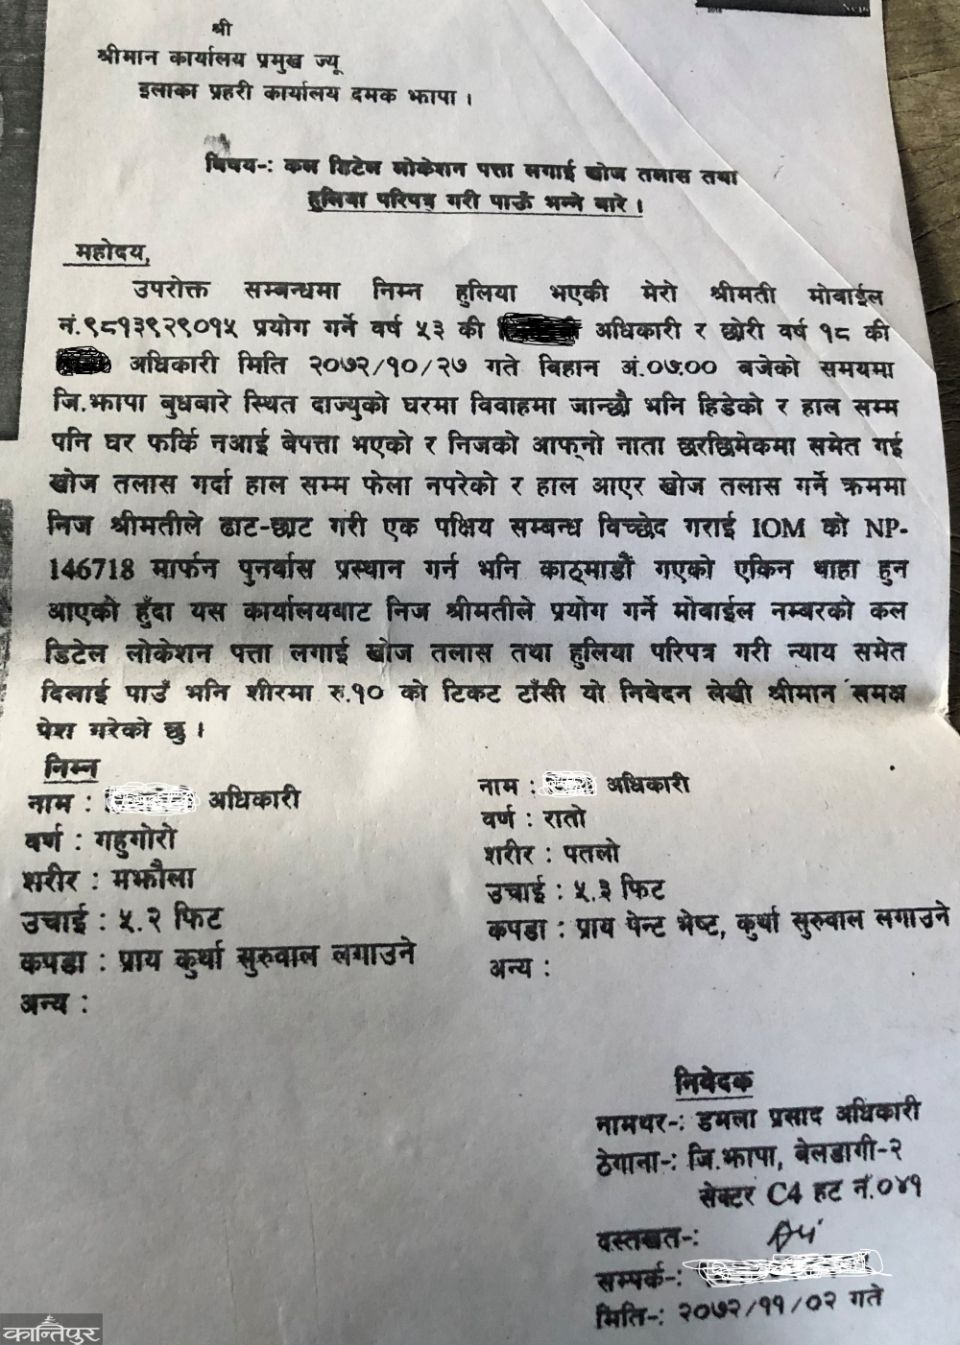 श्री
श्रीमान कार्यालय प्रमुख ज्यू
इलाका प्रहरी कार्यालय दमक झापा ।
विषय-: कल डिटेल लोकेशन पत्ता लगाई खोज तलास तथा
हुलिया परिपत्र गरी पाऊँ भन्ने बारे ।
महोदय,
उपरोक्त सम्बन्धमा निम्न हुलिया भएकी मेरो श्रीमती मोबाईल
नं.९८१३९२९०१५ प्रयोग गर्ने वर्ष ५३ की अधिकारी र छोरी वर्ष १८ की
अधिकारी मिति २०७२/१०/२७ गते बिहान अं.०७:०० बजेको समयमा
जि.झापा बुधबारे स्थित दाज्युको घरमा विवाहमा जान्छौ भनि हिडेको र हाल सम्म
पनि घर फर्कि नआई बेपत्ता भएको र निजको आफ्नो नाता छरछिमेकमा समेत गई
खोज तलास गर्दा हाल सम्म फेला नपरेको र हाल आएर खोज तलास गर्ने क्रममा
निज श्रीमतीले ढाट-छाट गरी एक पक्षिय सम्बन्ध विच्छेद गराई IOM को NP-
146718 मार्फन पुनर्वास प्रस्थान गर्न भनि काठ्माडौं गएको एकिन थाहा हुन
आएको हुँदा यस कार्यालयबाट निज श्रीमतीले प्रयोग गर्ने मोबाईल नम्बरको कल
डिटेल लोकेशन पत्ता लगाई खोज तलास तथा हुलिया परिपत्र गरी न्याय समेत
दिलाई पाउँ भनि शीरमा रु.१० को टिकट टाँसी यो निवेदन लेखी श्रीमान समक्ष
पेश गरेको छु ।
निम्न
नाम : अधिकारी
वर्ण : गहुगोरो
शरीर : मझौला
उचाई : ५.२ फिट
कपडा : प्राय कुर्था सुरुवाल लगाउने
अन्य :
नाम : अधिकारी
वर्ण : रातो
शरीर : पतलो
उचाई : ५.३ फिट
कपडा : प्राय पेन्ट भेष्ट, कुर्था सुरुवाल लगाउने
अन्य :
निवेदक
नामथर-: डमला प्रसाद अधिकारी
ठेगाना-: जि.झापा, बेलडागी-२
सेक्टर C4 हट नं.०४१
दस्तखत-:
सम्पर्क-:
मिति-: २०७२/११/०२ गते
कान्तिपुर